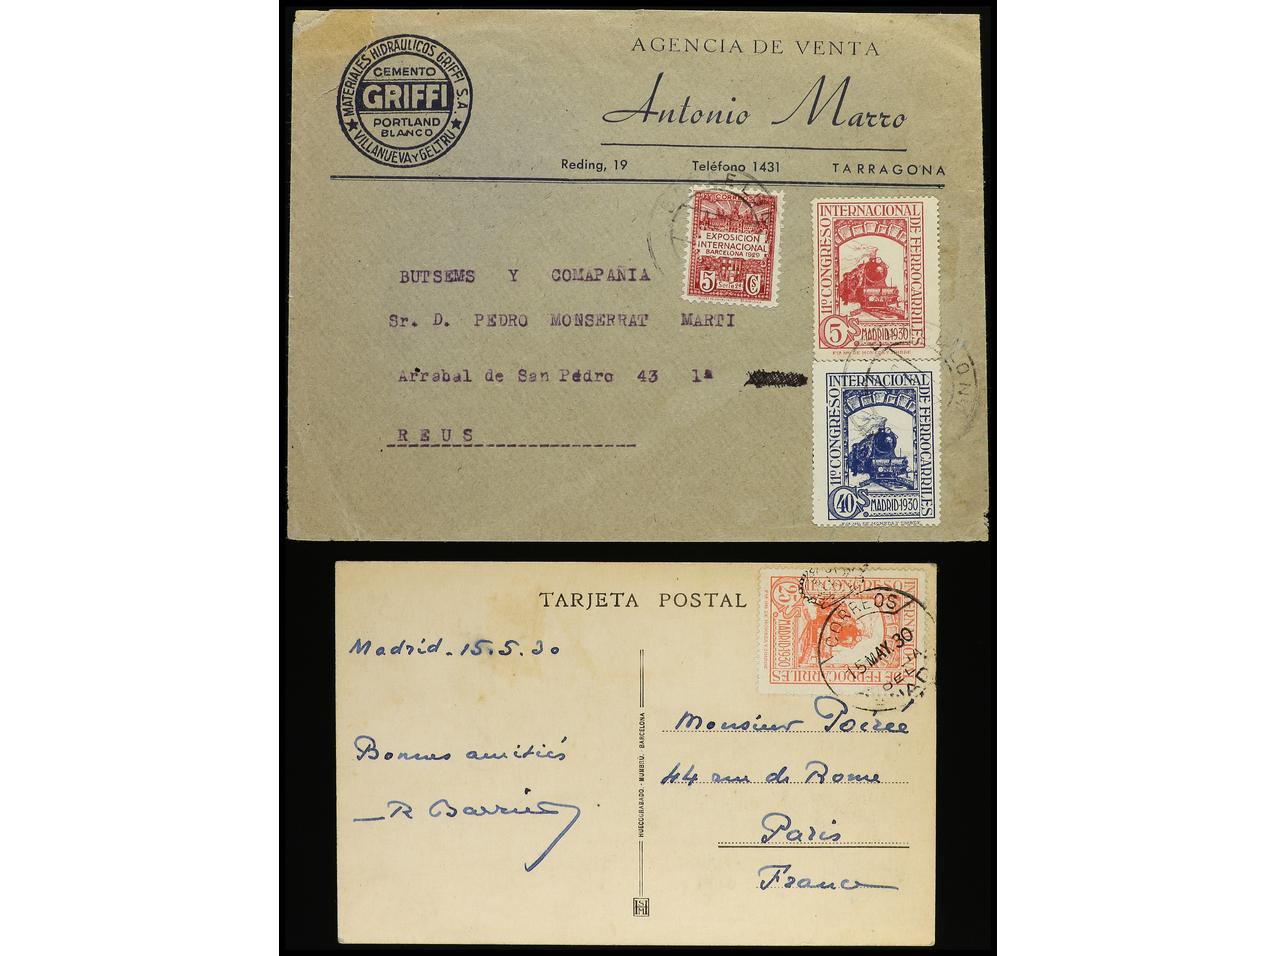 MATERIALES HIDRÁULICOS GRIFFI S.A.
CEMENTO
GRIFFI
PORTLAND
BLANCO
★ VILLANUEVA Y GELTRU ★
AGENCIA DE VENTA
Antonio Marro
Reding, 19 Teléfono 1431 TARRAGONA
EXPOSICION
INTERNACIONAL
BARCELONA 1929
5 Serie 2ª CS
11º CONGRESO INTERNACIONAL DE FERROCARRILES
5 CS. MADRID·1930
BUTSEMS Y COMAPAÑIA
Sr. D. PEDRO MONSERRAT MARTI
Arrabal de San Pedro 43 1ª
REUS
11º CONGRESO INTERNACIONAL DE FERROCARRILES
40 CS. MADRID·1930
TARJETA POSTAL
11º CONGRESO DE FERROCARRILES
25 CS. MADRID·1930
CORREOS
15 MAY. 30
Madrid - 15.5.30
Monsieur Poirée
Bonnes amitiés
44 rue de Rome
R Barrie
Paris
France
HUECOGRABADO - MUMBRU - BARCELONA